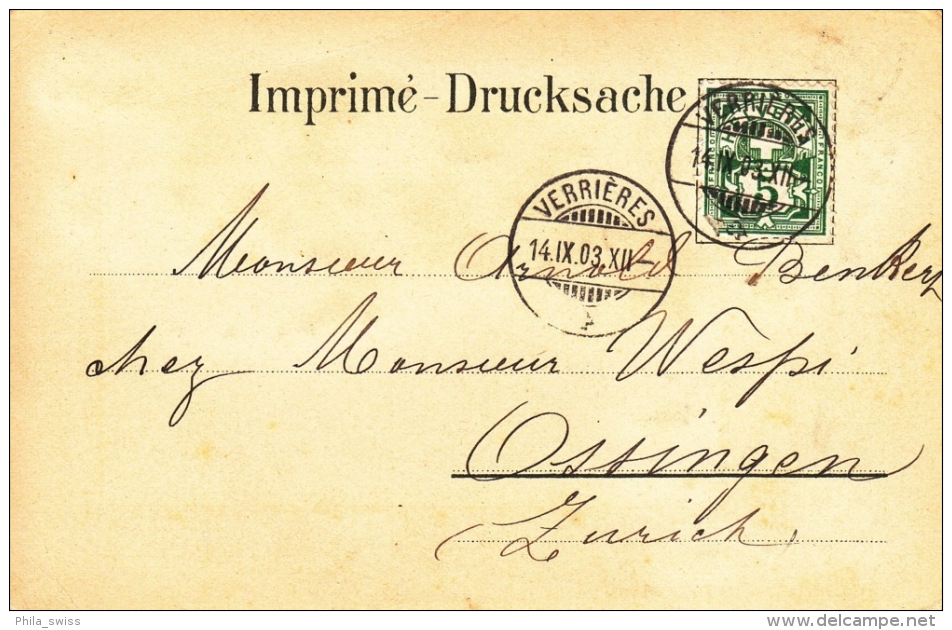 Imprimé - Drucksache
VERRIÈRES
14.IX.03.XII
FRANCO
5
VERRIÈRES
14.IX.03.XII–
Monsieur Arnold Benkerz
chez Monsieur Wespi
Ossingen
Zurich,
Phila_swiss
delcampe.net